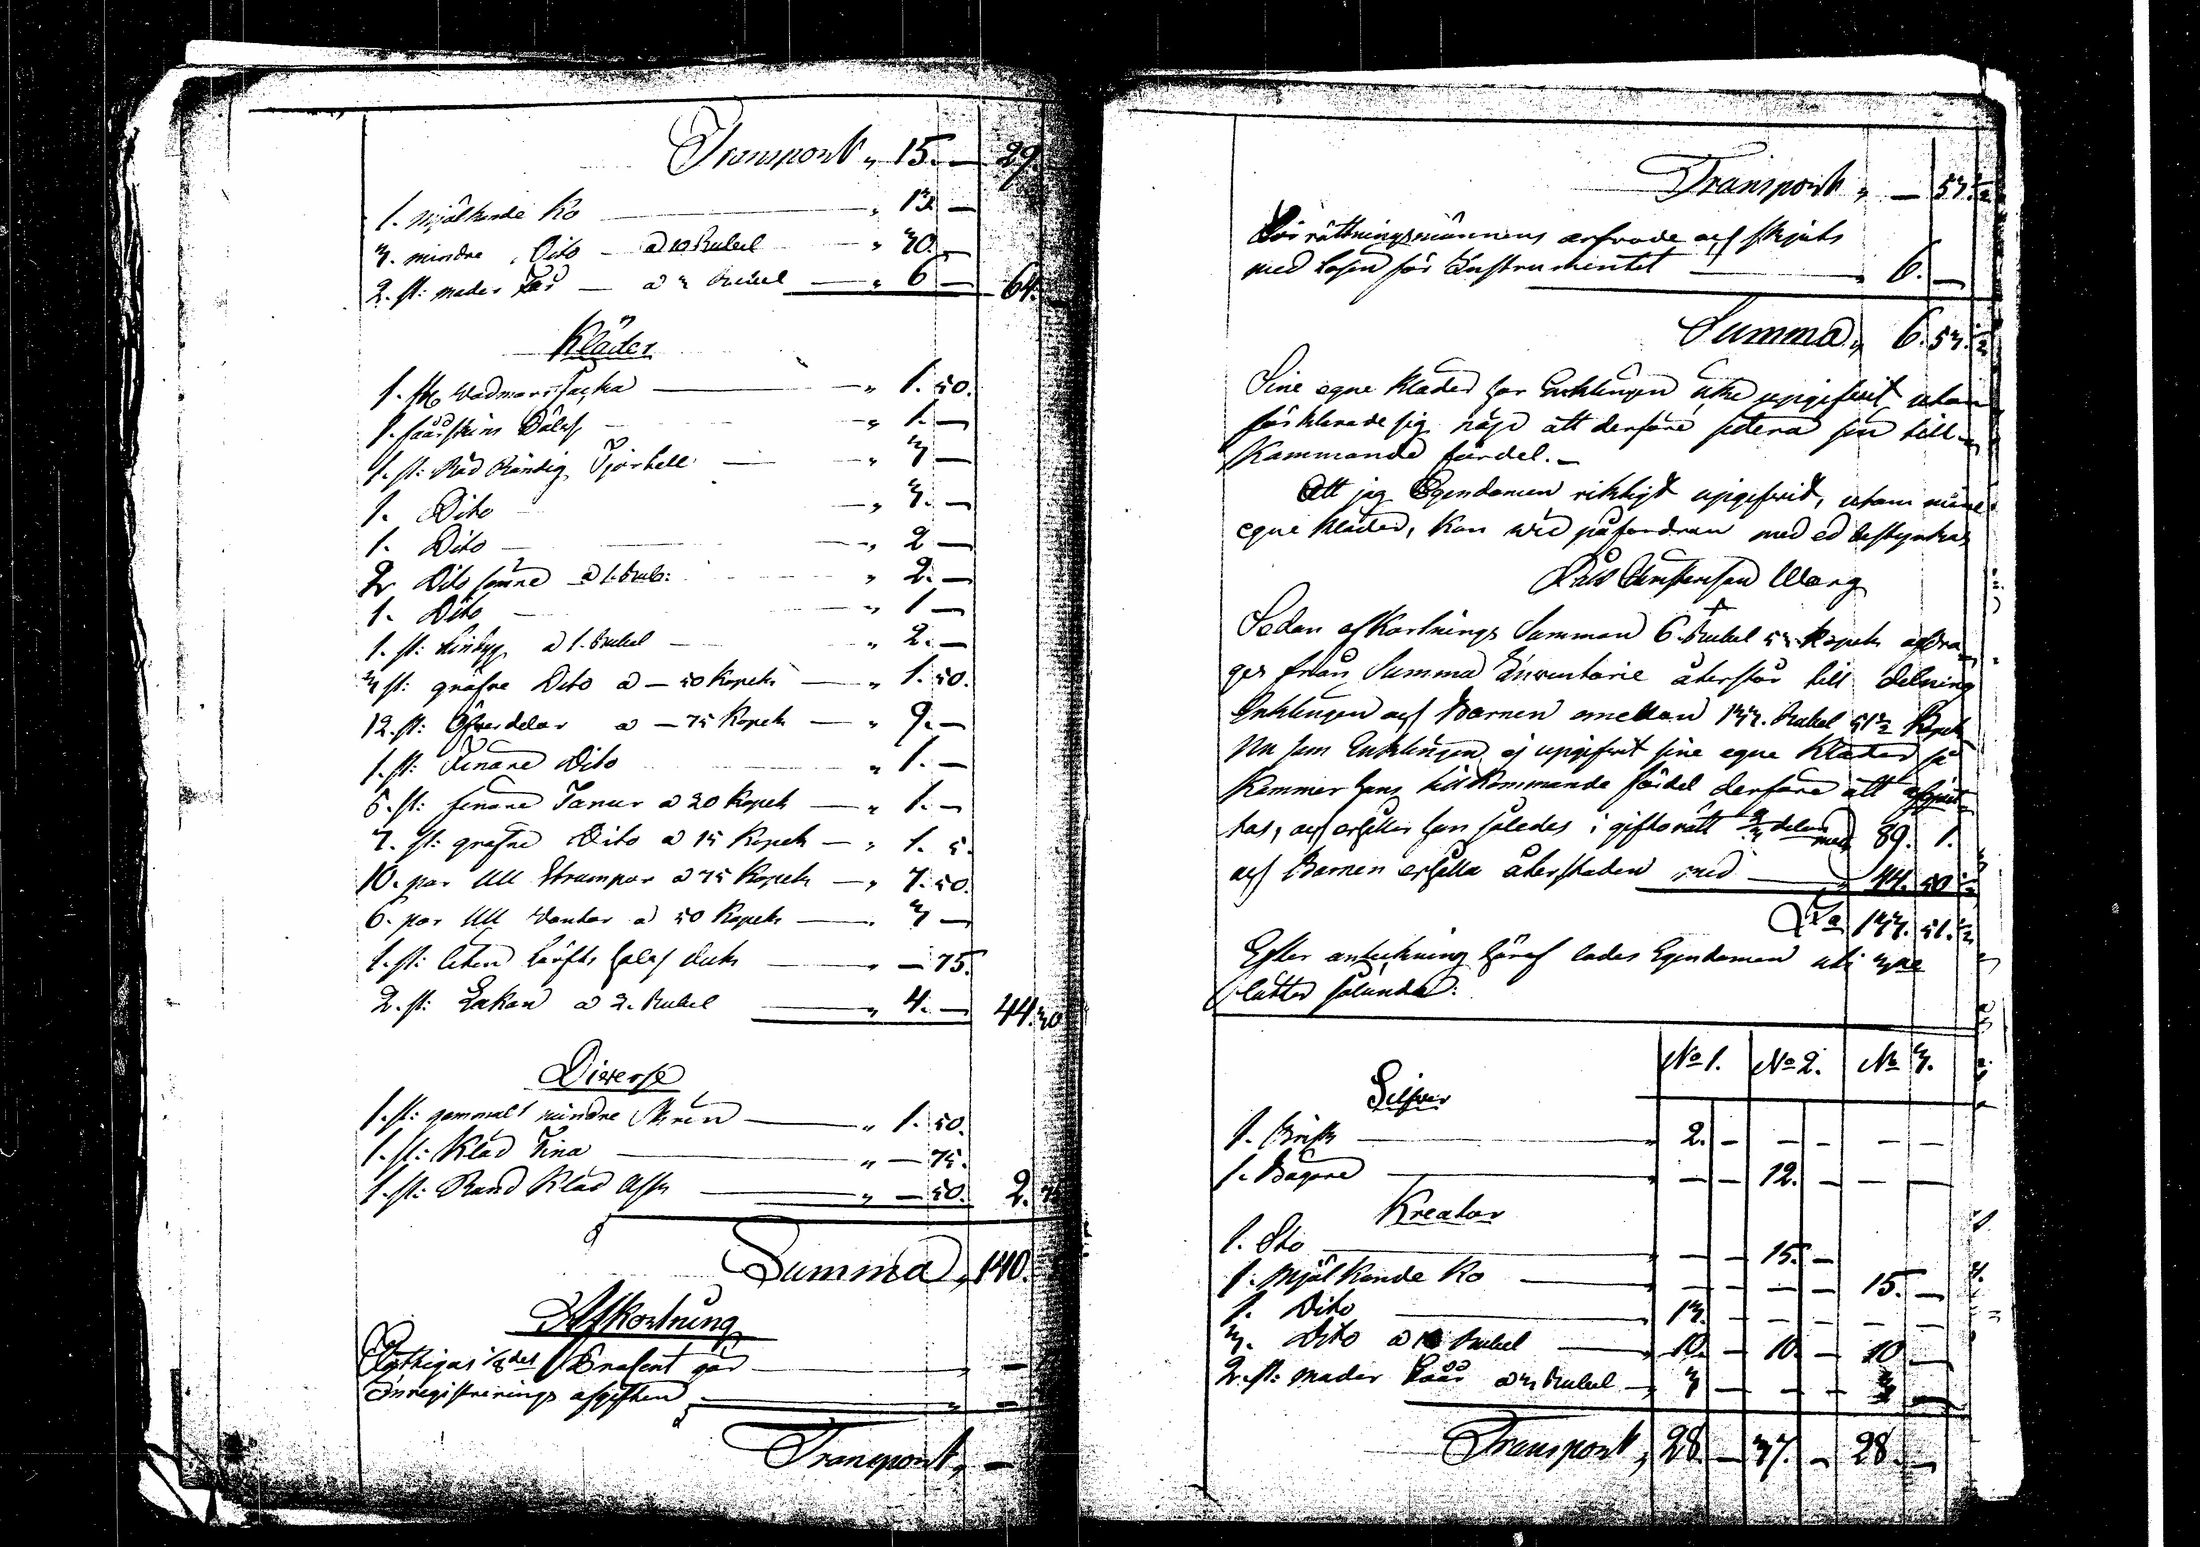 Transport „ 15. — 29.
1. mjölkande Ko — „ 13. —
3. mindre Dito — a 10 Rubel — „ 30. —
2. st: moder Får — a 3 Rubel — „ 6 — 64.
Kläder
1. st. Wadmars Jacka — „ 1. 50.
1. fåårskins — „ 1. —
1. st: Röd Rändig Kjortell — „ 3 —
1. Dito „ 3. —
1. Dito — „ 2 —
2 Dito sämre a 1. Rub: „ 2. —
1. Dito — „ 1 —
1. st: a 1. Rubel — „ 2. —
3 st: gröfre Dito a — 50 Kopek — „ 1. 50.
12. st: Öfverdelar a — 75 Kopek — „ 9. —
1. st: Finare Dito „ 1. —
5. st: finare a 20 Kopek — „ 1. —
7. st: gröfre Dito a 15 Kopek — „ 1. 5.
10. par Ull Strumpor a 75 Kopek — „ 7. 50.
6. par Ull Vantar a 50 Kopek — „ 3 —
1. st: liten half duk — „ — 75.
2. st: Lakan a 2. Rubel — „ 4. — 44. 30
Diverse
1. st: gammalt mindre Skrin — „ 1. 50.
1. st: Kläd Tina — „ — 75.
1. st: Rund Kläd Ask — „ — 50. 2. 75
Summa „ 140.
Afkortning
Fattigas 1/8 des Procent går — „ —
Inregistrerings afgiften — „ —
Transport „ —
Transport „ — 53. 1/2
Förrättningsmännens arfvode och skjuts
med lösen för Instrumentet — „ 6. —
Summa „ 6. 53. 1/2
Sine egne Kläder har Enklingen icke upgifvit utan
förklarade sig nöjd att derföre sitt till-
Kommande fördel. —
Att jag Egendomen riktigt upgifvit, utom mine
egne Kläder, Kan wid påfordran med ed bestyrkas
Warg
Sedan afkortnings Summan 6. Rubel 53 Kopek afdra-
ges från Summa Inventarie återstår till delning
Enklingen och Barnen emellan 133. Rubel 51 1/2 Kopek
Nu som Enklingen ej upgifvit sine egne Kläder så
Kommer hans tillkommande fördel derföre att afqvit-
tas, och erhåller han således i giftorätt 2/3 delar med 89. 1.
och Barnen erhålla återstoden med — 44. 50 1/2
S:a 133. 51. 1/2
Efter anteckning häraf lades Egendomen uti 3ne
lotter sålunda:
No 1. No 2. No 3.
Silfver
1. — 2. — — — — —
1. Bägare — — — 12. — — —
Kreatur
1. Sto — — — 15. —
1. Mjölkande Ko — — — — — 15. —
1. Dito — 13. — — — —
3. Dito a 10 Rubel — 10. — 10. — 10 —
2. st: moder Fåår a 3 Rubel — 3 — — — 3 —
Transport, 28. — 37. — 28. —